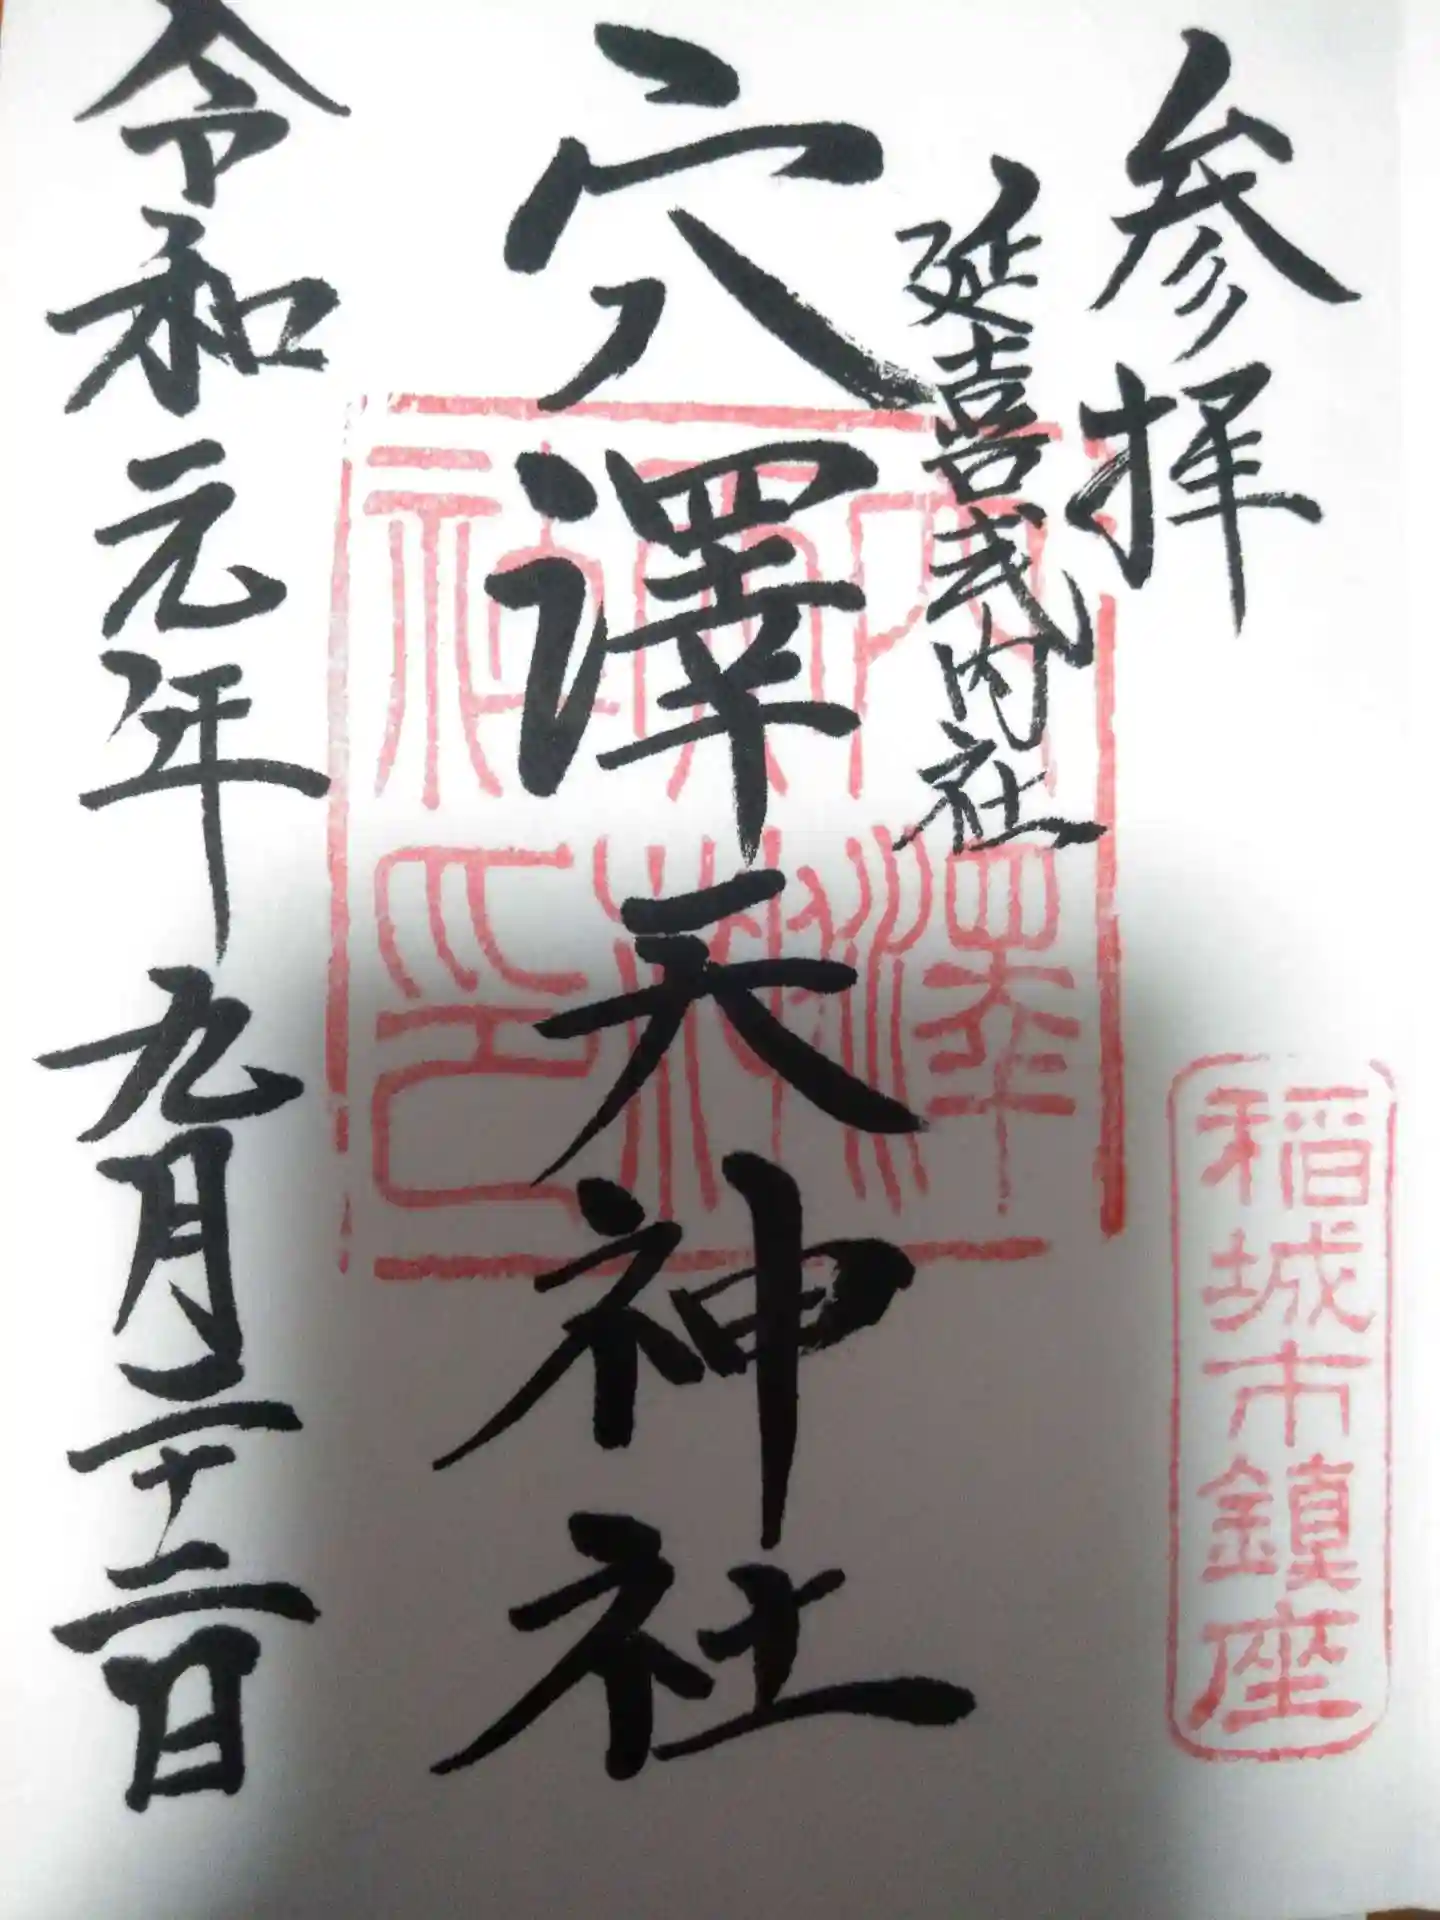 参拝
稲城市鎮座
延喜式内社
穴澤天神社
穴澤天神社印
令和元年九月二十二日